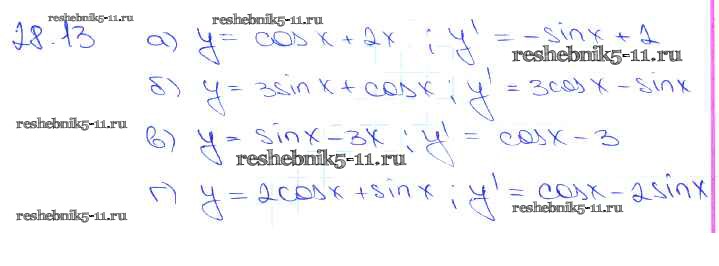 reshebnik5-11.ru reshebnik5-11.ru
28.13 а) y = cosx + 2x ; y' = -sinx + 2
reshebnik5-11.ru
б) y = 3sinx + cosx ; y' = 3cosx - sinx
reshebnik5-11.ru
в) y = sinx - 3x ; y' = cosx - 3
reshebnik5-11.ru
г) y = 2cosx + sinx ; y' = cosx - 2sinx
reshebnik5-11.ru reshebnik5-11.ru